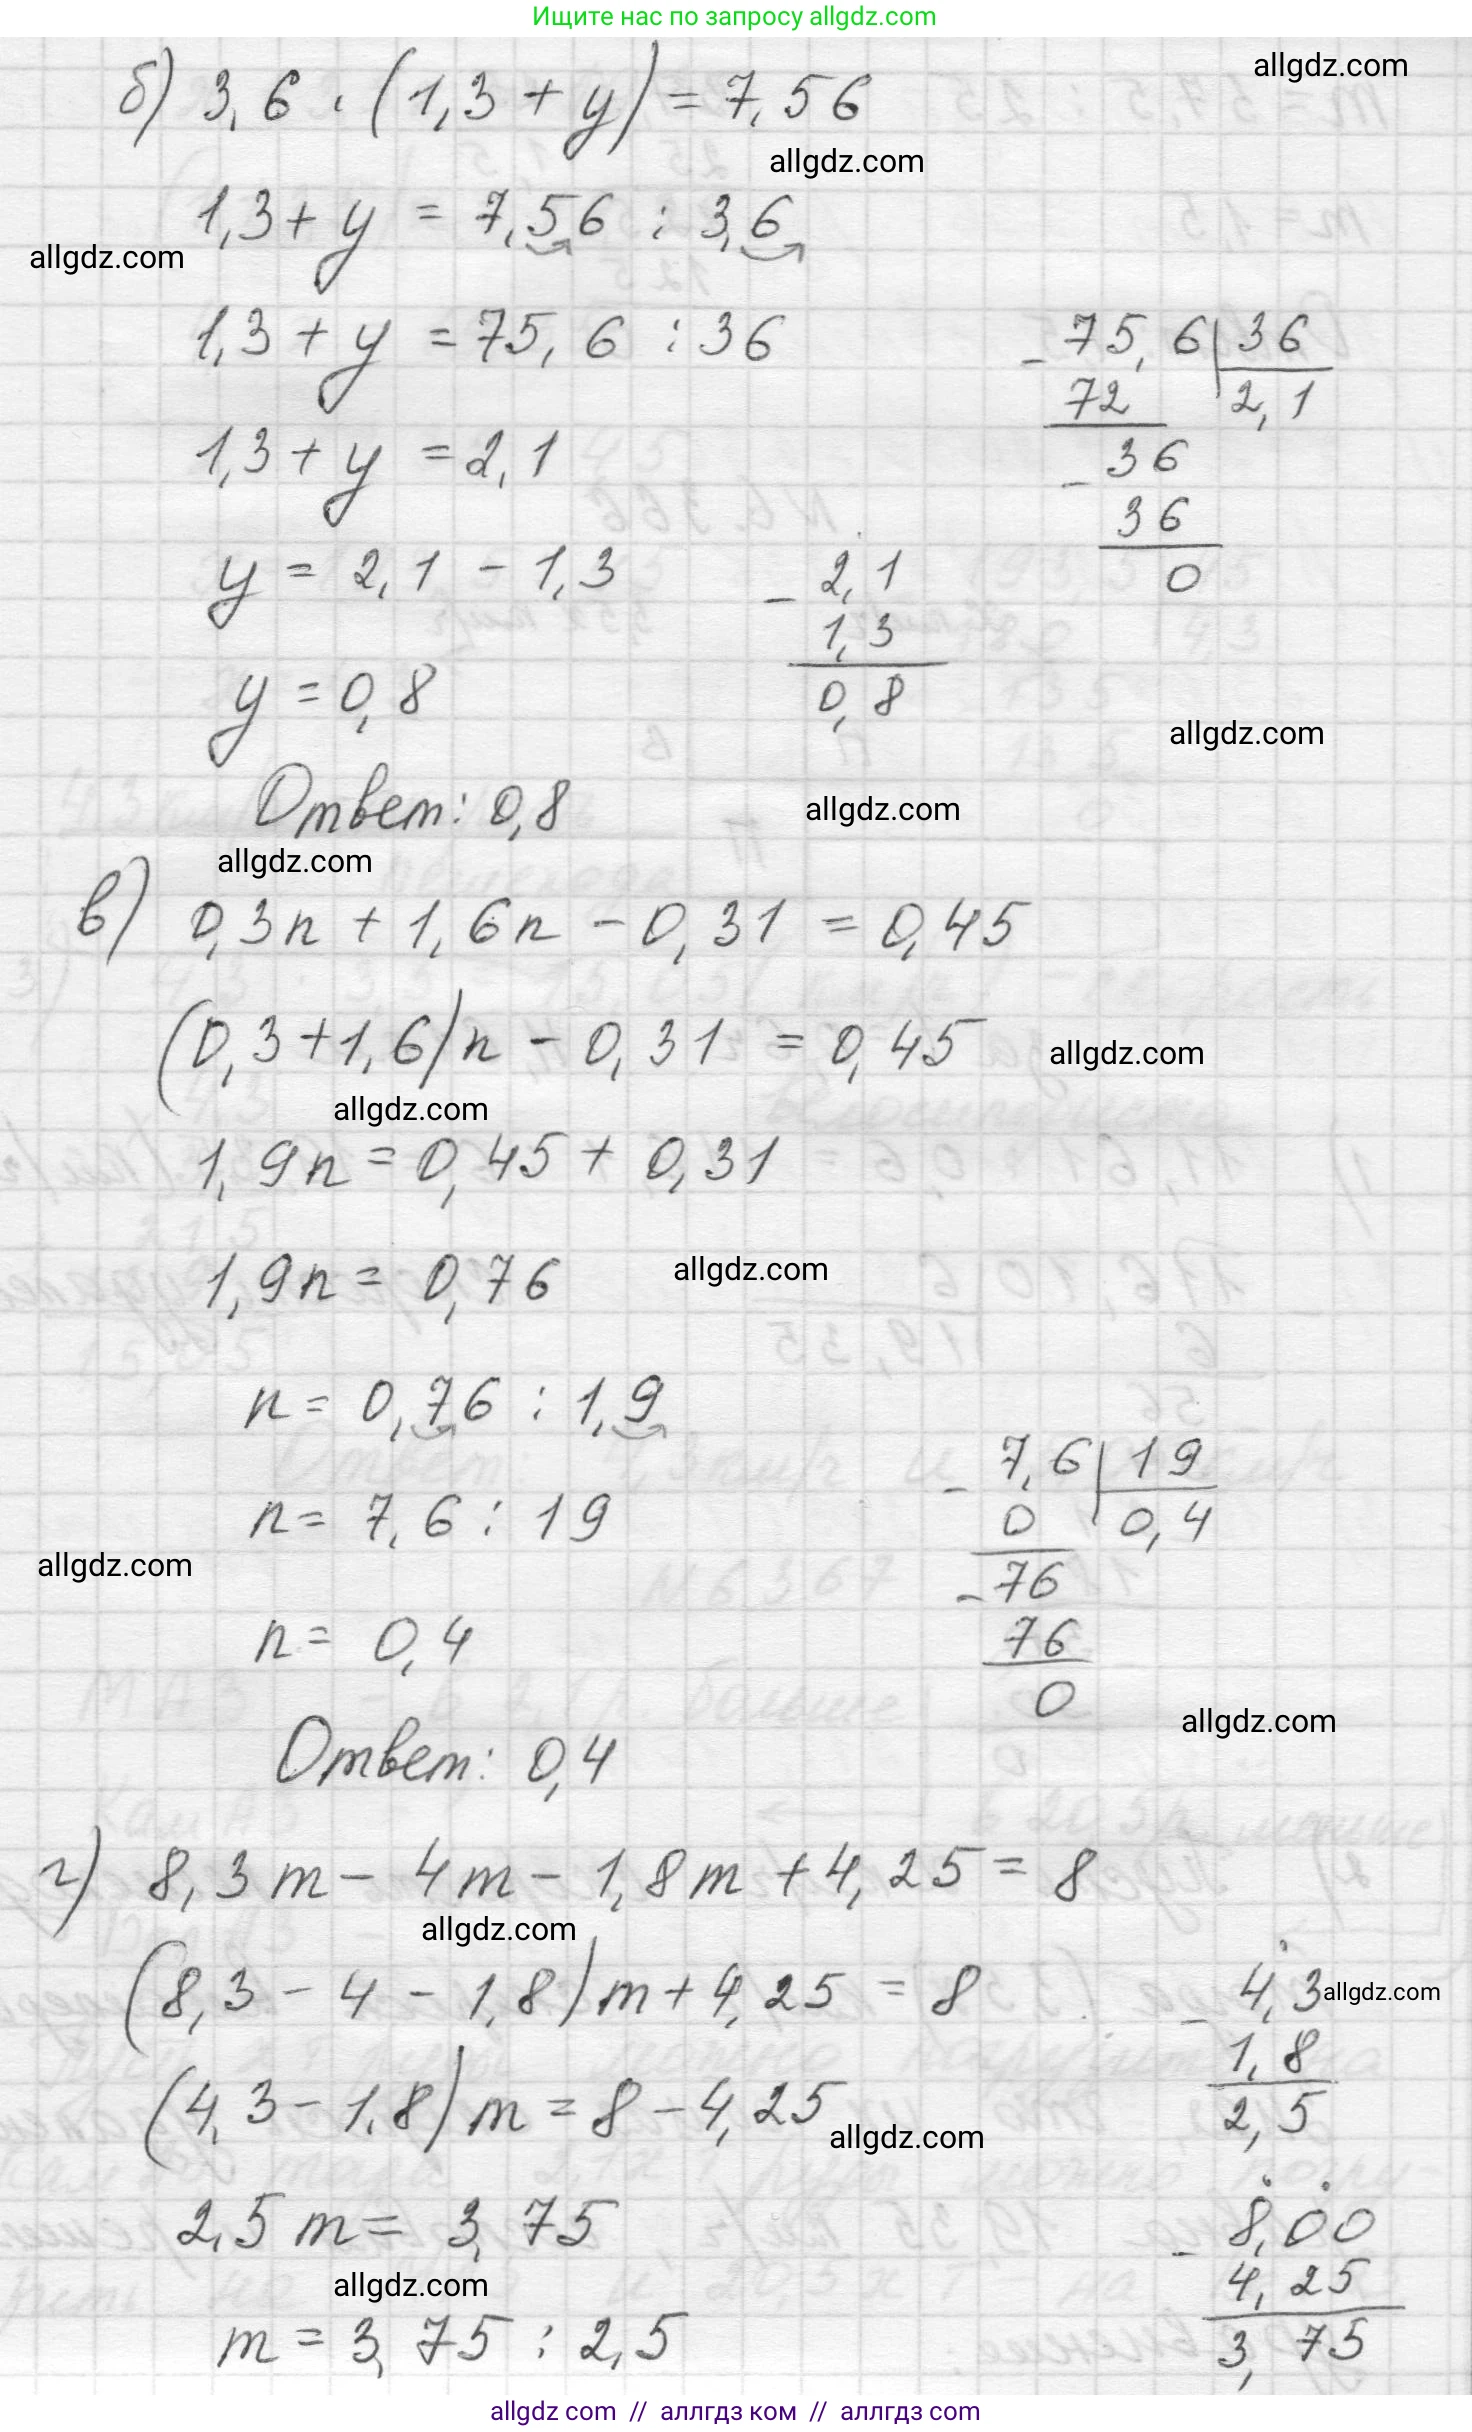 Ищите нас по запросу allgdz.com
allgdz.com
б) 3,6 · (1,3 + y) = 7,56
allgdz.com
1,3 + y = 7,56 : 3,6
allgdz.com
1,3 + y = 75,6 : 36
75,6 | 36
- 72 2,1
1,3 + y = 2,1
- 36
36
0
y = 2,1 - 1,3
- 2,1
1,3
0,8
y = 0,8
allgdz.com
Ответ: 0,8
allgdz.com
allgdz.com
в) 0,3n + 1,6n - 0,31 = 0,45
(0,3 + 1,6)n - 0,31 = 0,45
allgdz.com
allgdz.com
1,9n = 0,45 + 0,31
1,9n = 0,76
allgdz.com
n = 0,76 : 1,9
n = 7,6 : 19
- 7,6 | 19
0 0,4
- 76
76
0
allgdz.com
n = 0,4
allgdz.com
Ответ: 0,4
г) 8,3m - 4m - 1,8m + 4,25 = 8
allgdz.com
(8,3 - 4 - 1,8)m + 4,25 = 8
- 4,3
1,8
2,5
allgdz.com
(4,3 - 1,8)m = 8 - 4,25
allgdz.com
2,5m = 3,75
- 8,00
4,25
3,75
allgdz.com
m = 3,75 : 2,5
allgdz.com // аллгдз ком // аллгдз com